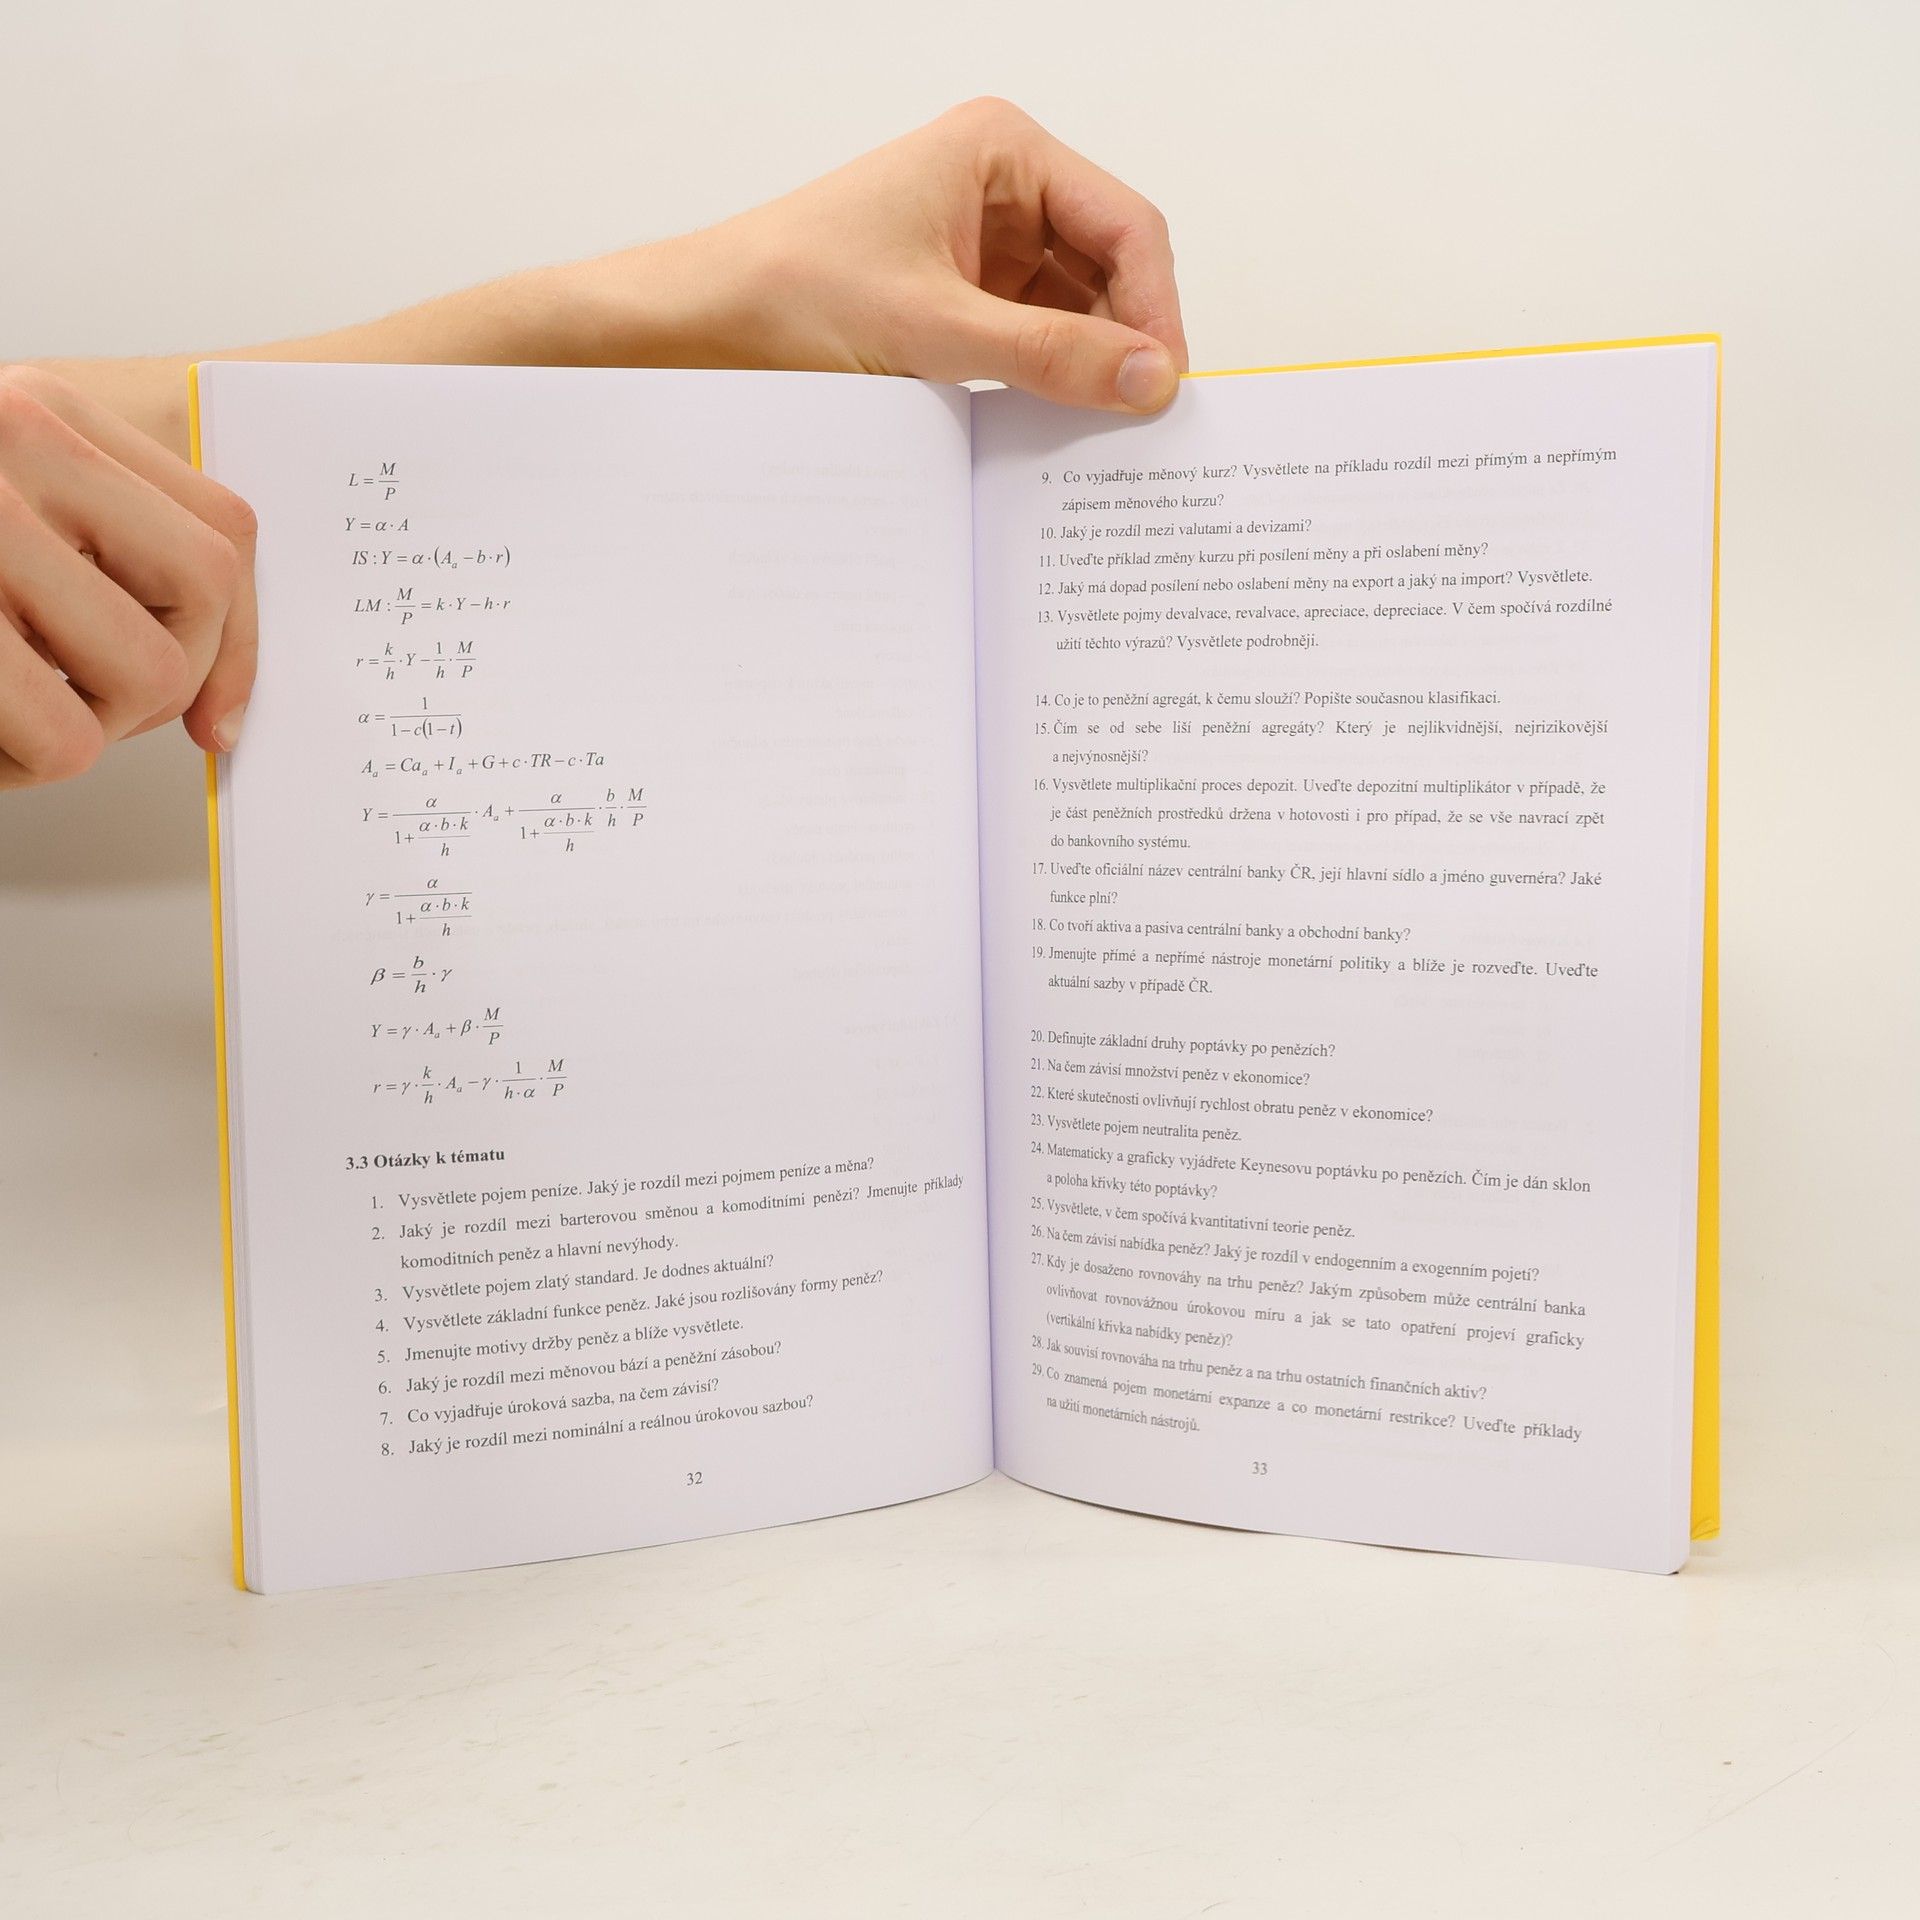 L = M/P
Y = α · A
IS : Y = α · (A_a − b · r)
LM : M/P = k · Y − h · r
r = k/h · Y − 1/h · M/P
α = 1/(1 − c(1 − t))
A_a = Ca_a + I_a + G + c · TR − c · Ta
Y = α/(1 + (α · b · k)/h) · A_a + α/(1 + (α · b · k)/h) · b/h · M/P
γ = α/(1 + (α · b · k)/h)
β = b/h · γ
Y = γ · A_a + β · M/P
r = γ · k/h · A_a − γ · 1/(h · α) · M/P
3.3 Otázky k tématu
1. Vysvětlete pojem peníze. Jaký je rozdíl mezi pojmem peníze a měna?
2. Jaký je rozdíl mezi barterovou směnou a komoditními penězi? Jmenujte příklady
komoditních peněz a hlavní nevýhody.
3. Vysvětlete pojem zlatý standard. Je dodnes aktuální?
4. Vysvětlete základní funkce peněz. Jaké jsou rozlišovány formy peněz?
5. Jmenujte motivy držby peněz a blíže vysvětlete.
6. Jaký je rozdíl mezi měnovou bází a peněžní zásobou?
7. Co vyjadřuje úroková sazba, na čem závisí?
8. Jaký je rozdíl mezi nominální a reálnou úrokovou sazbou?
32
9. Co vyjadřuje měnový kurz? Vysvětlete na příkladu rozdíl mezi přímým a nepřímým
zápisem měnového kurzu?
10. Jaký je rozdíl mezi valutami a devizami?
11. Uveďte příklad změny kurzu při posílení měny a při oslabení měny?
12. Jaký má dopad posílení nebo oslabení měny na export a jaký na import? Vysvětlete.
13. Vysvětlete pojmy devalvace, revalvace, apreciace, depreciace. V čem spočívá rozdílné
užití těchto výrazů? Vysvětlete podrobněji.
14. Co je to peněžní agregát, k čemu slouží? Popište současnou klasifikaci.
15. Čím se od sebe liší peněžní agregáty? Který je nejlikvidnější, nejrizikovější
a nejvýnosnější?
16. Vysvětlete multiplikační proces depozit. Uveďte depozitní multiplikátor v případě, že
je část peněžních prostředků držena v hotovosti i pro případ, že se vše navrací zpět
do bankovního systému.
17. Uveďte oficiální název centrální banky ČR, její hlavní sídlo a jméno guvernéra? Jaké
funkce plní?
18. Co tvoří aktiva a pasiva centrální banky a obchodní banky?
19. Jmenujte přímé a nepřímé nástroje monetární politiky a blíže je rozveďte. Uveďte
aktuální sazby v případě ČR.
20. Definujte základní druhy poptávky po penězích?
21. Na čem závisí množství peněz v ekonomice?
22. Které skutečnosti ovlivňují rychlost obratu peněz v ekonomice?
23. Vysvětlete pojem neutralita peněz.
24. Matematicky a graficky vyjádřete Keynesovu poptávku po penězích. Čím je dán sklon
a poloha křivky této poptávky?
25. Vysvětlete, v čem spočívá kvantitativní teorie peněz.
26. Na čem závisí nabídka peněz? Jaký je rozdíl v endogenním a exogenním pojetí?
27. Kdy je dosaženo rovnováhy na trhu peněz? Jakým způsobem může centrální banka
ovlivňovat rovnovážnou úrokovou míru a jak se tato opatření projeví graficky
(vertikální křivka nabídky peněz)?
28. Jak souvisí rovnováha na trhu peněz a na trhu ostatních finančních aktiv?
29. Co znamená pojem monetární expanze a co monetární restrikce? Uveďte příklady
na užití monetárních nástrojů.
33